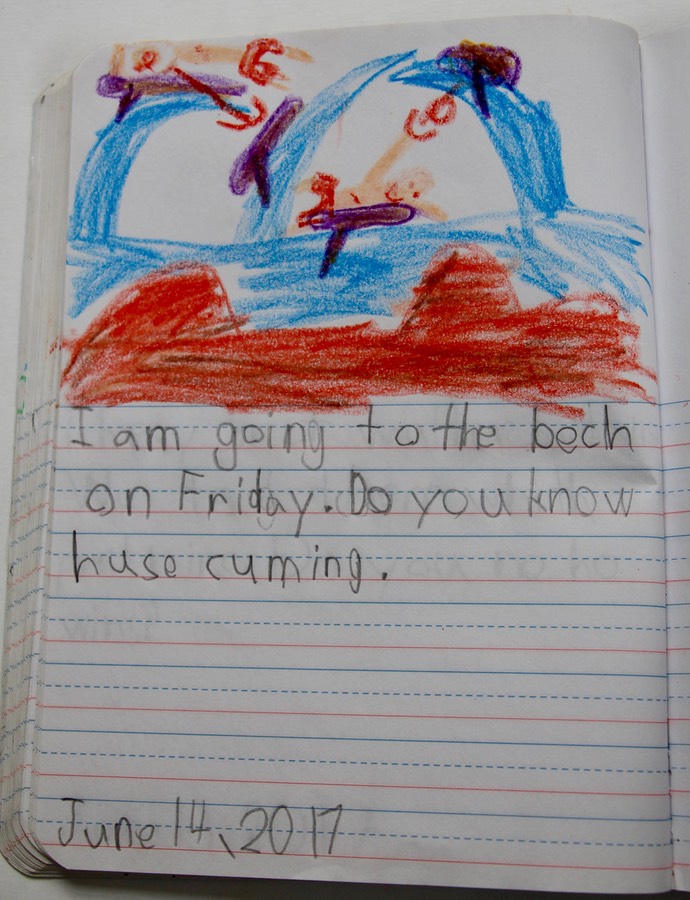 I am going to the bech
on Friday. Do you know
huse cuming.
June 14, 2017